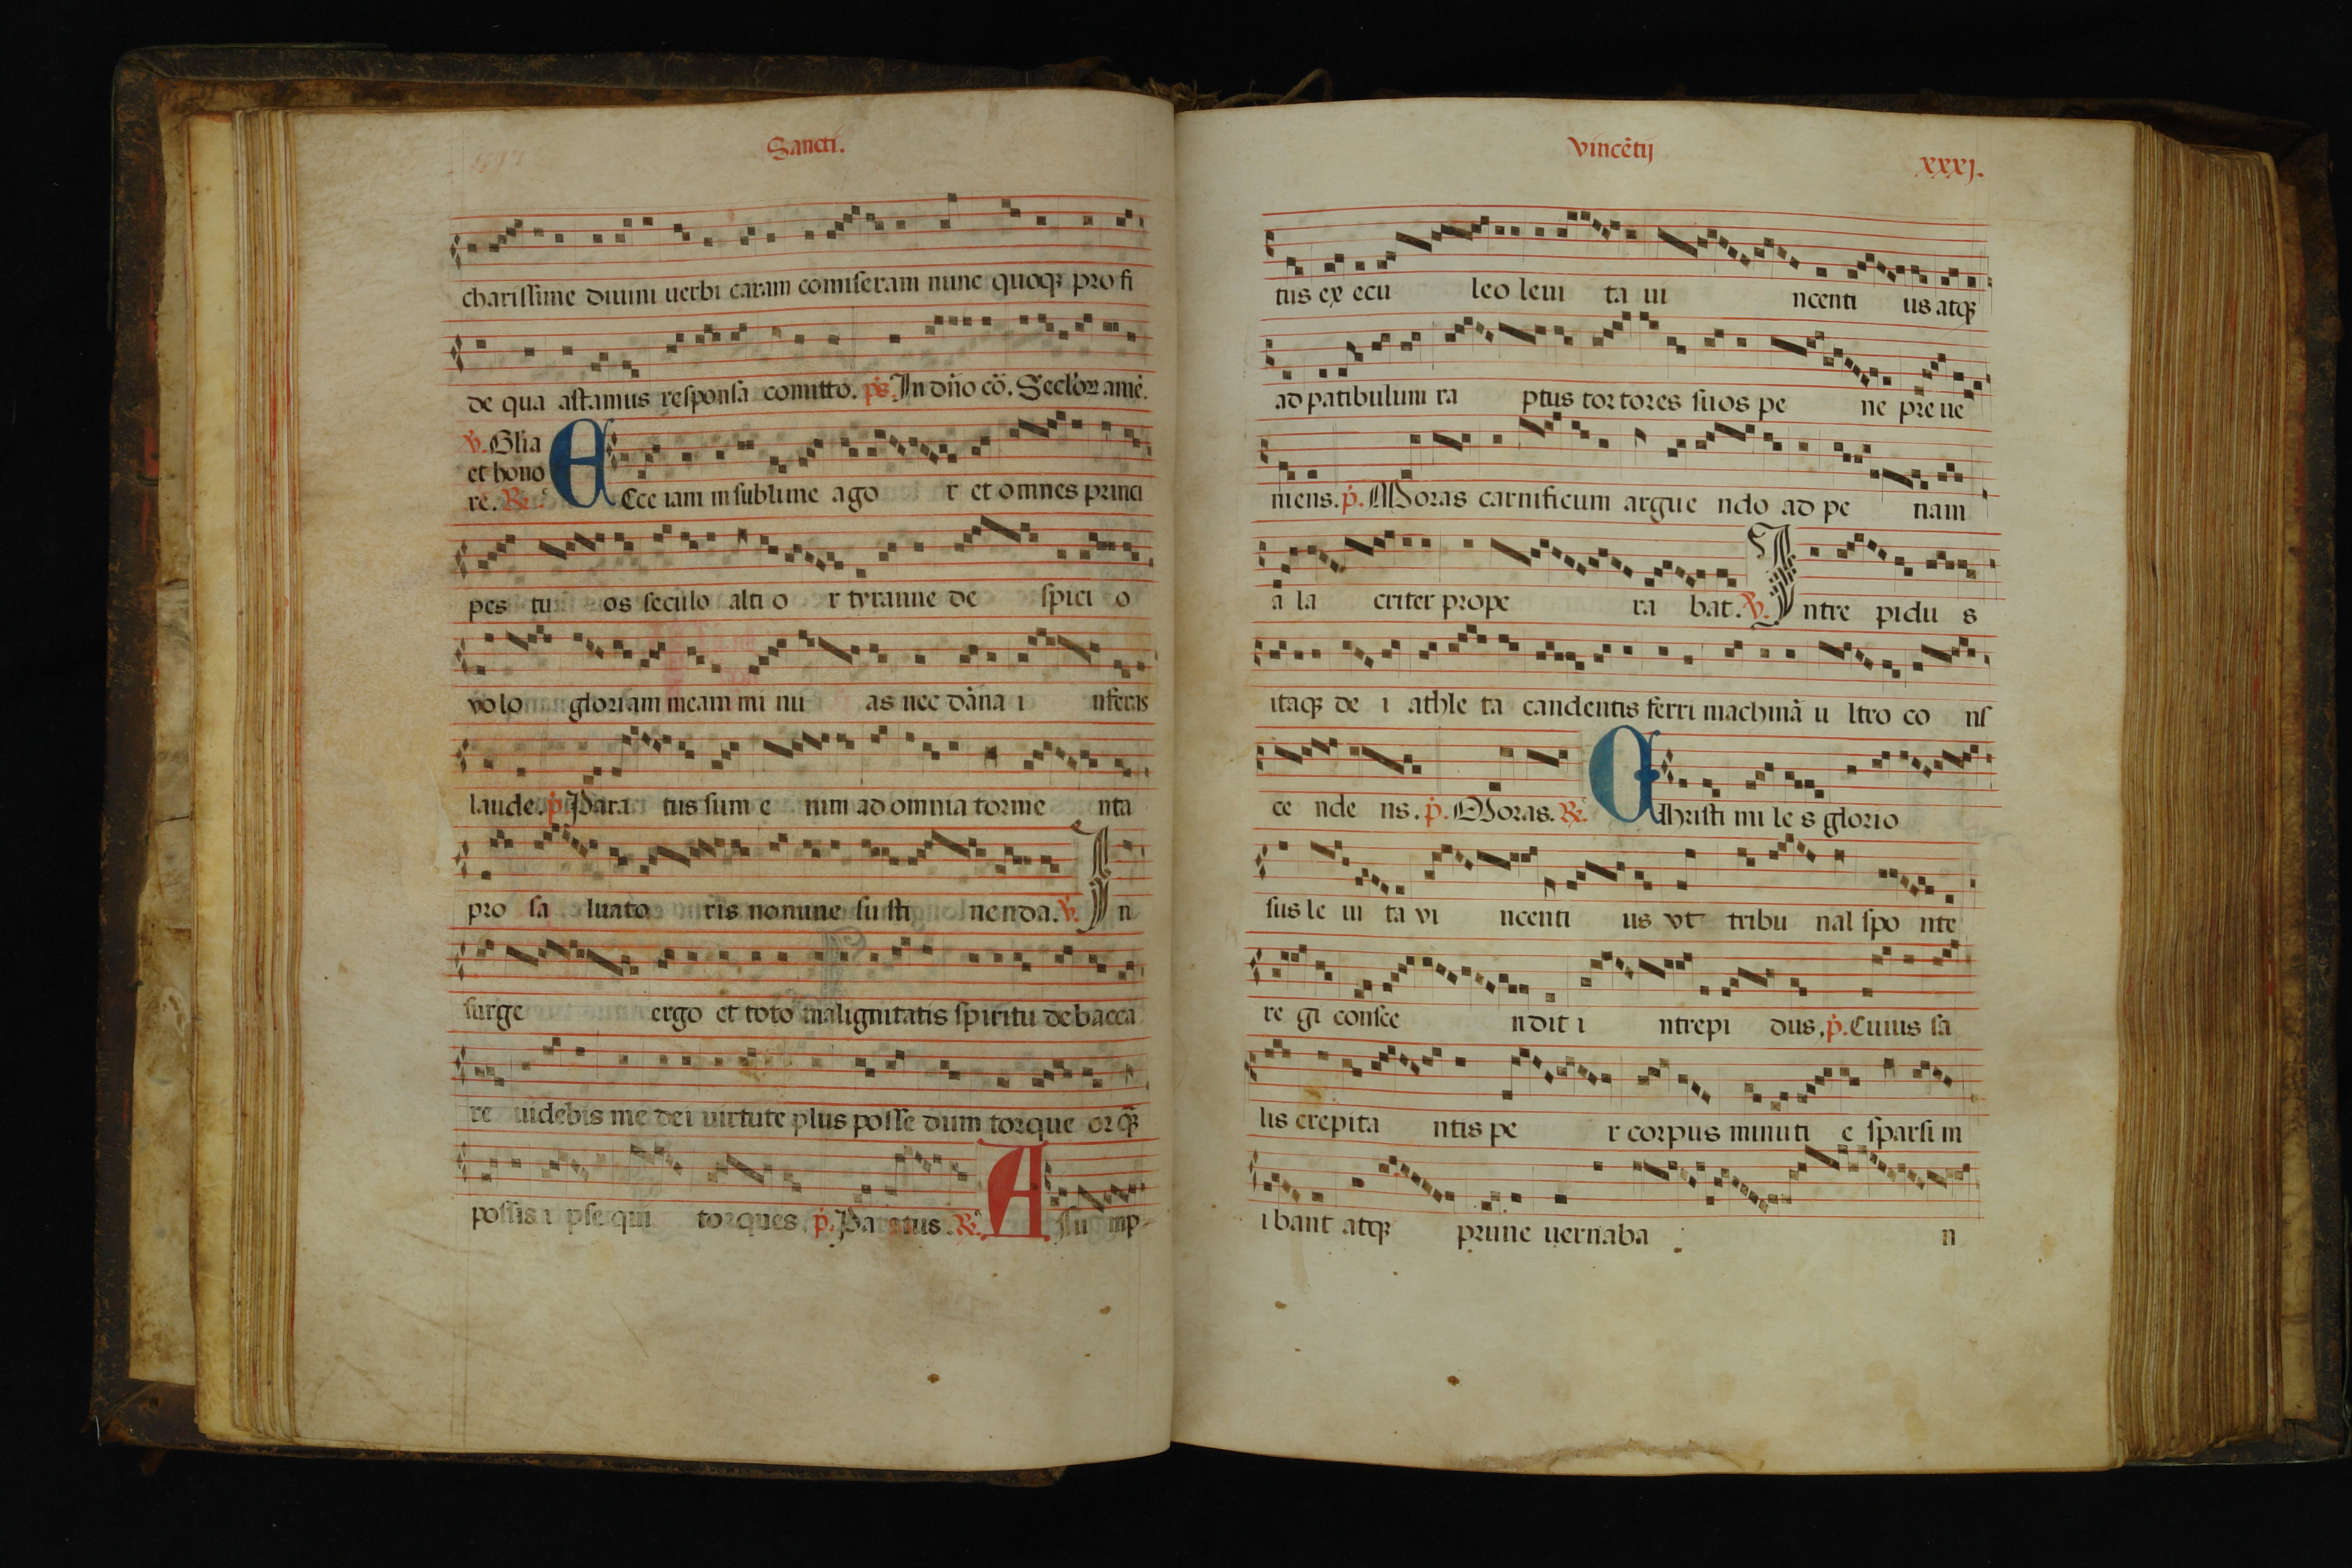 Sancti.
charissime diuini uerbi curam comiseram nunc quoqꝫ pro fi
de qua astamus responsa comitto. ps. In dño cō. Seclóꝝ amē.
℣. Glia
et hono
re. ℟.
ECce iam in sublime ago r et omnes princi
pes tu os seculo alti o r tyranne de spici o
volo gloriam meam mi nu as nec dāna i nferas
laude. p. Para tus sum e nim ad omnia torme nta
pro sa luato ris nomine susti nenda. ℣. In
surge ergo et toto malignitatis spiritu debacca
re uidebis me dei uirtute plus posse dum torque or q̄ꝫ
possis i pse qui torques. p. Paratus. ℟. Assu mp-
Vincētij
xxxj.
tus ex ecu leo leui ta ui ncenti us atqꝫ
ad patibulum ra ptus tortores suos pe ne preue
niens. p. Moras carnificum argue ndo ad pe nam
a la criter prope ra bat. ℣. Intre pidu s
itaqꝫ de i athle ta candentis ferri machinā u ltro co ns
ce nde ns. p. Moras. ℟. CHristi mi le s glorio
sus le ui ta vi ncenti us vt tribu nal spo nte
re gi consce ndit i ntrepi dus. p. Cuius sa
lis crepita ntis pe r corpus minuti e sparsi m
i bant atqꝫ prune uernaba n